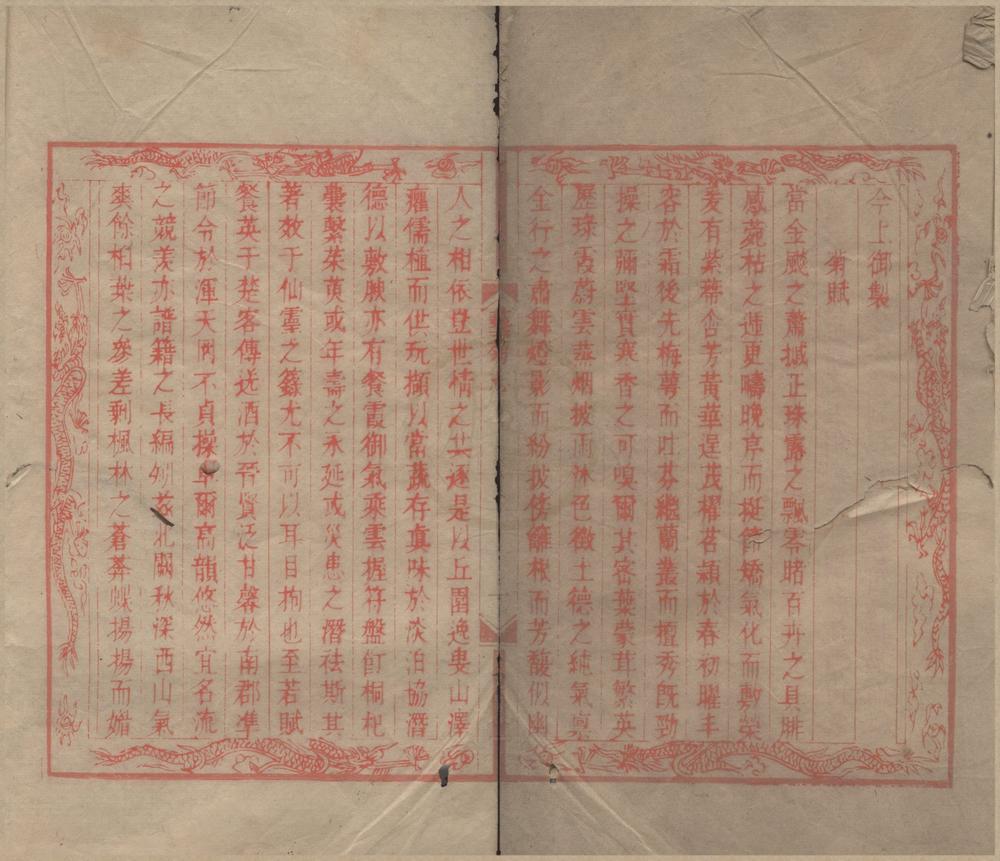 今上御製
菊賦
當金颷之蕭摵正珠露之飄零睹百卉之具腓
感菀枯之遞更疇晚亭而挺節嬌氣化而敷榮
爰有紫蒂含芳黃華逞茂擢苕穎於春初曜丰
容於霜後先梅蕚而吐芬繼蘭叢而擅秀既勁
操之彌堅實寒香之可嗅爾其密葉蒙茸繁英
歷琭霞蔚雲蒸烟披雨沐色徵土德之純氣稟
金行之肅舞婚影而紛披倚籬根而芳馥似幽
人之相依豈世情之共逐是以丘園逸叟山澤
癯儒植而供玩擷以當蔬存真味於淡泊協潛
德以敷腴亦有餐霞御氣乘雲握符盤飣桐杞
囊繫茱萸或年壽之永延或災患之潛祛斯其
著效于仙靈之籙尤不可以耳目拘也至若賦
餐英于楚客傳送酒於晉賢泛甘馨於南郡準
節令於渾天罔不貞操卓爾高韻悠然宜名流
之競羨亦譜籍之長編别茲北闕秋深西山氣
爽餘柏葉之參差剩楓林之蒼莽燦揚揚而媚